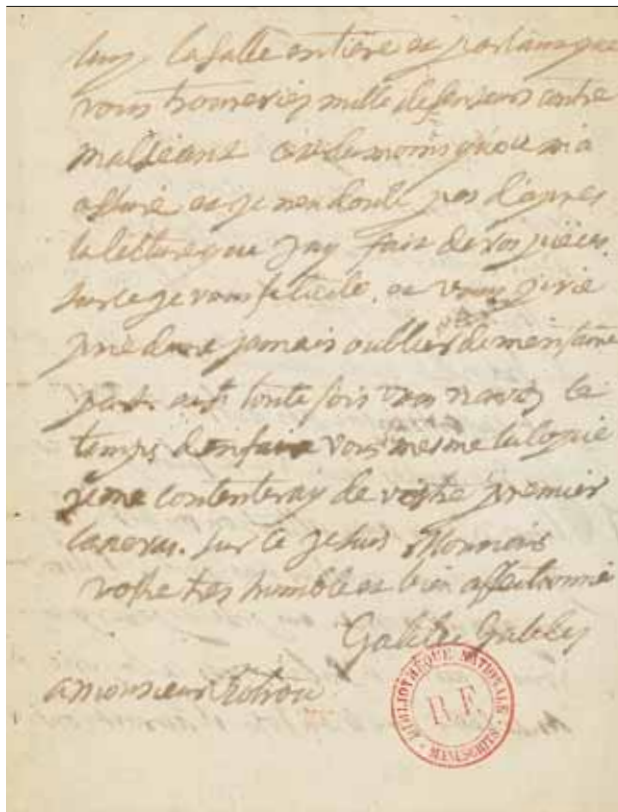 luy. la salle entiere et partausque
vous trouveries mille defenseurs contre
malseans cest du moins quon m'a
assuré et je nen doute pas dapres
la lecture que jay fait de vos pieces
sur ce je vous felicite. et vous prie
dene jamais oublier de men faire
part toute fois vous navez le
temps den faire vous mesme la copie
je me contenteray de vostre premier
canevas. sur ce je suis Monsieur
vostre tres humble et bien affectionné
Galileo Galilei
a monsieur Rotrou
BIBLIOTHÈQUE NATIONALE
R.F.
MANUSCRITS